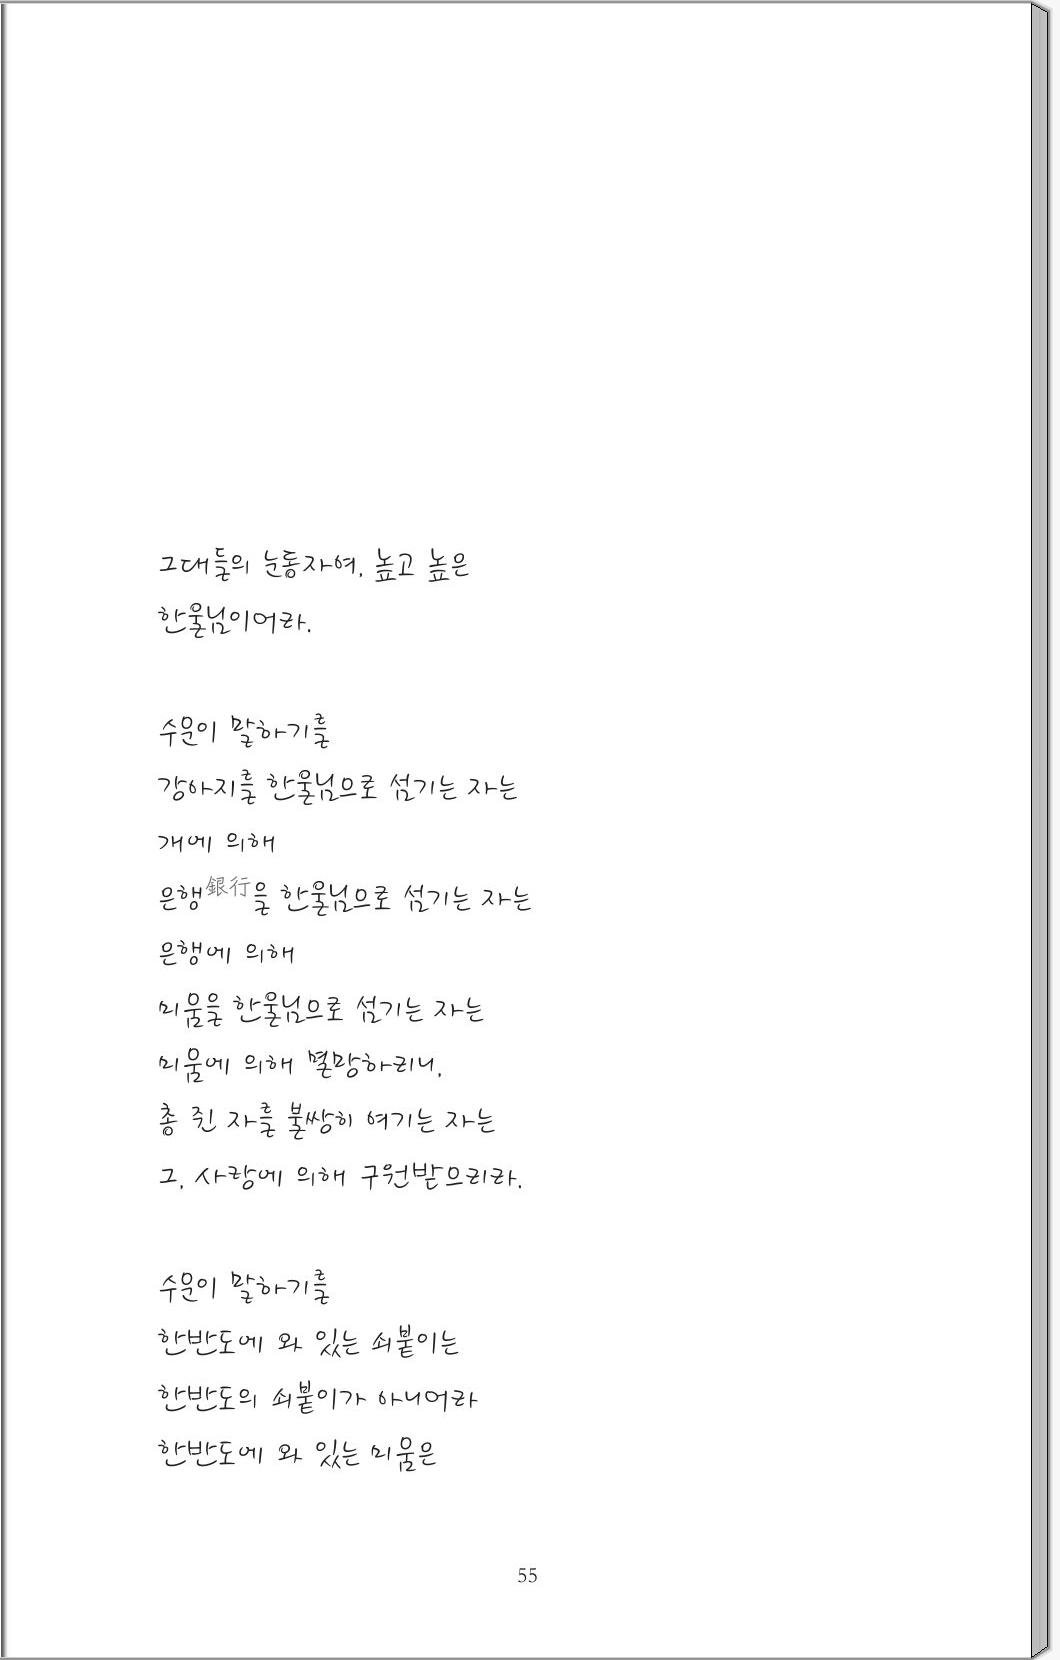 그대들의 눈동자여, 높고 높은
한울님이어라.
수운이 말하기를
강아지를 한울님으로 섬기는 자는
개에 의해
은행銀行을 한울님으로 섬기는 자는
은행에 의해
미움을 한울님으로 섬기는 자는
미움에 의해 멸망하리니,
총 쥔 자를 불쌍히 여기는 자는
그, 사랑에 의해 구원받으리라.
수운이 말하기를
한반도에 와 있는 쇠붙이는
한반도의 쇠붙이가 아니어라
한반도에 와 있는 미움은
55